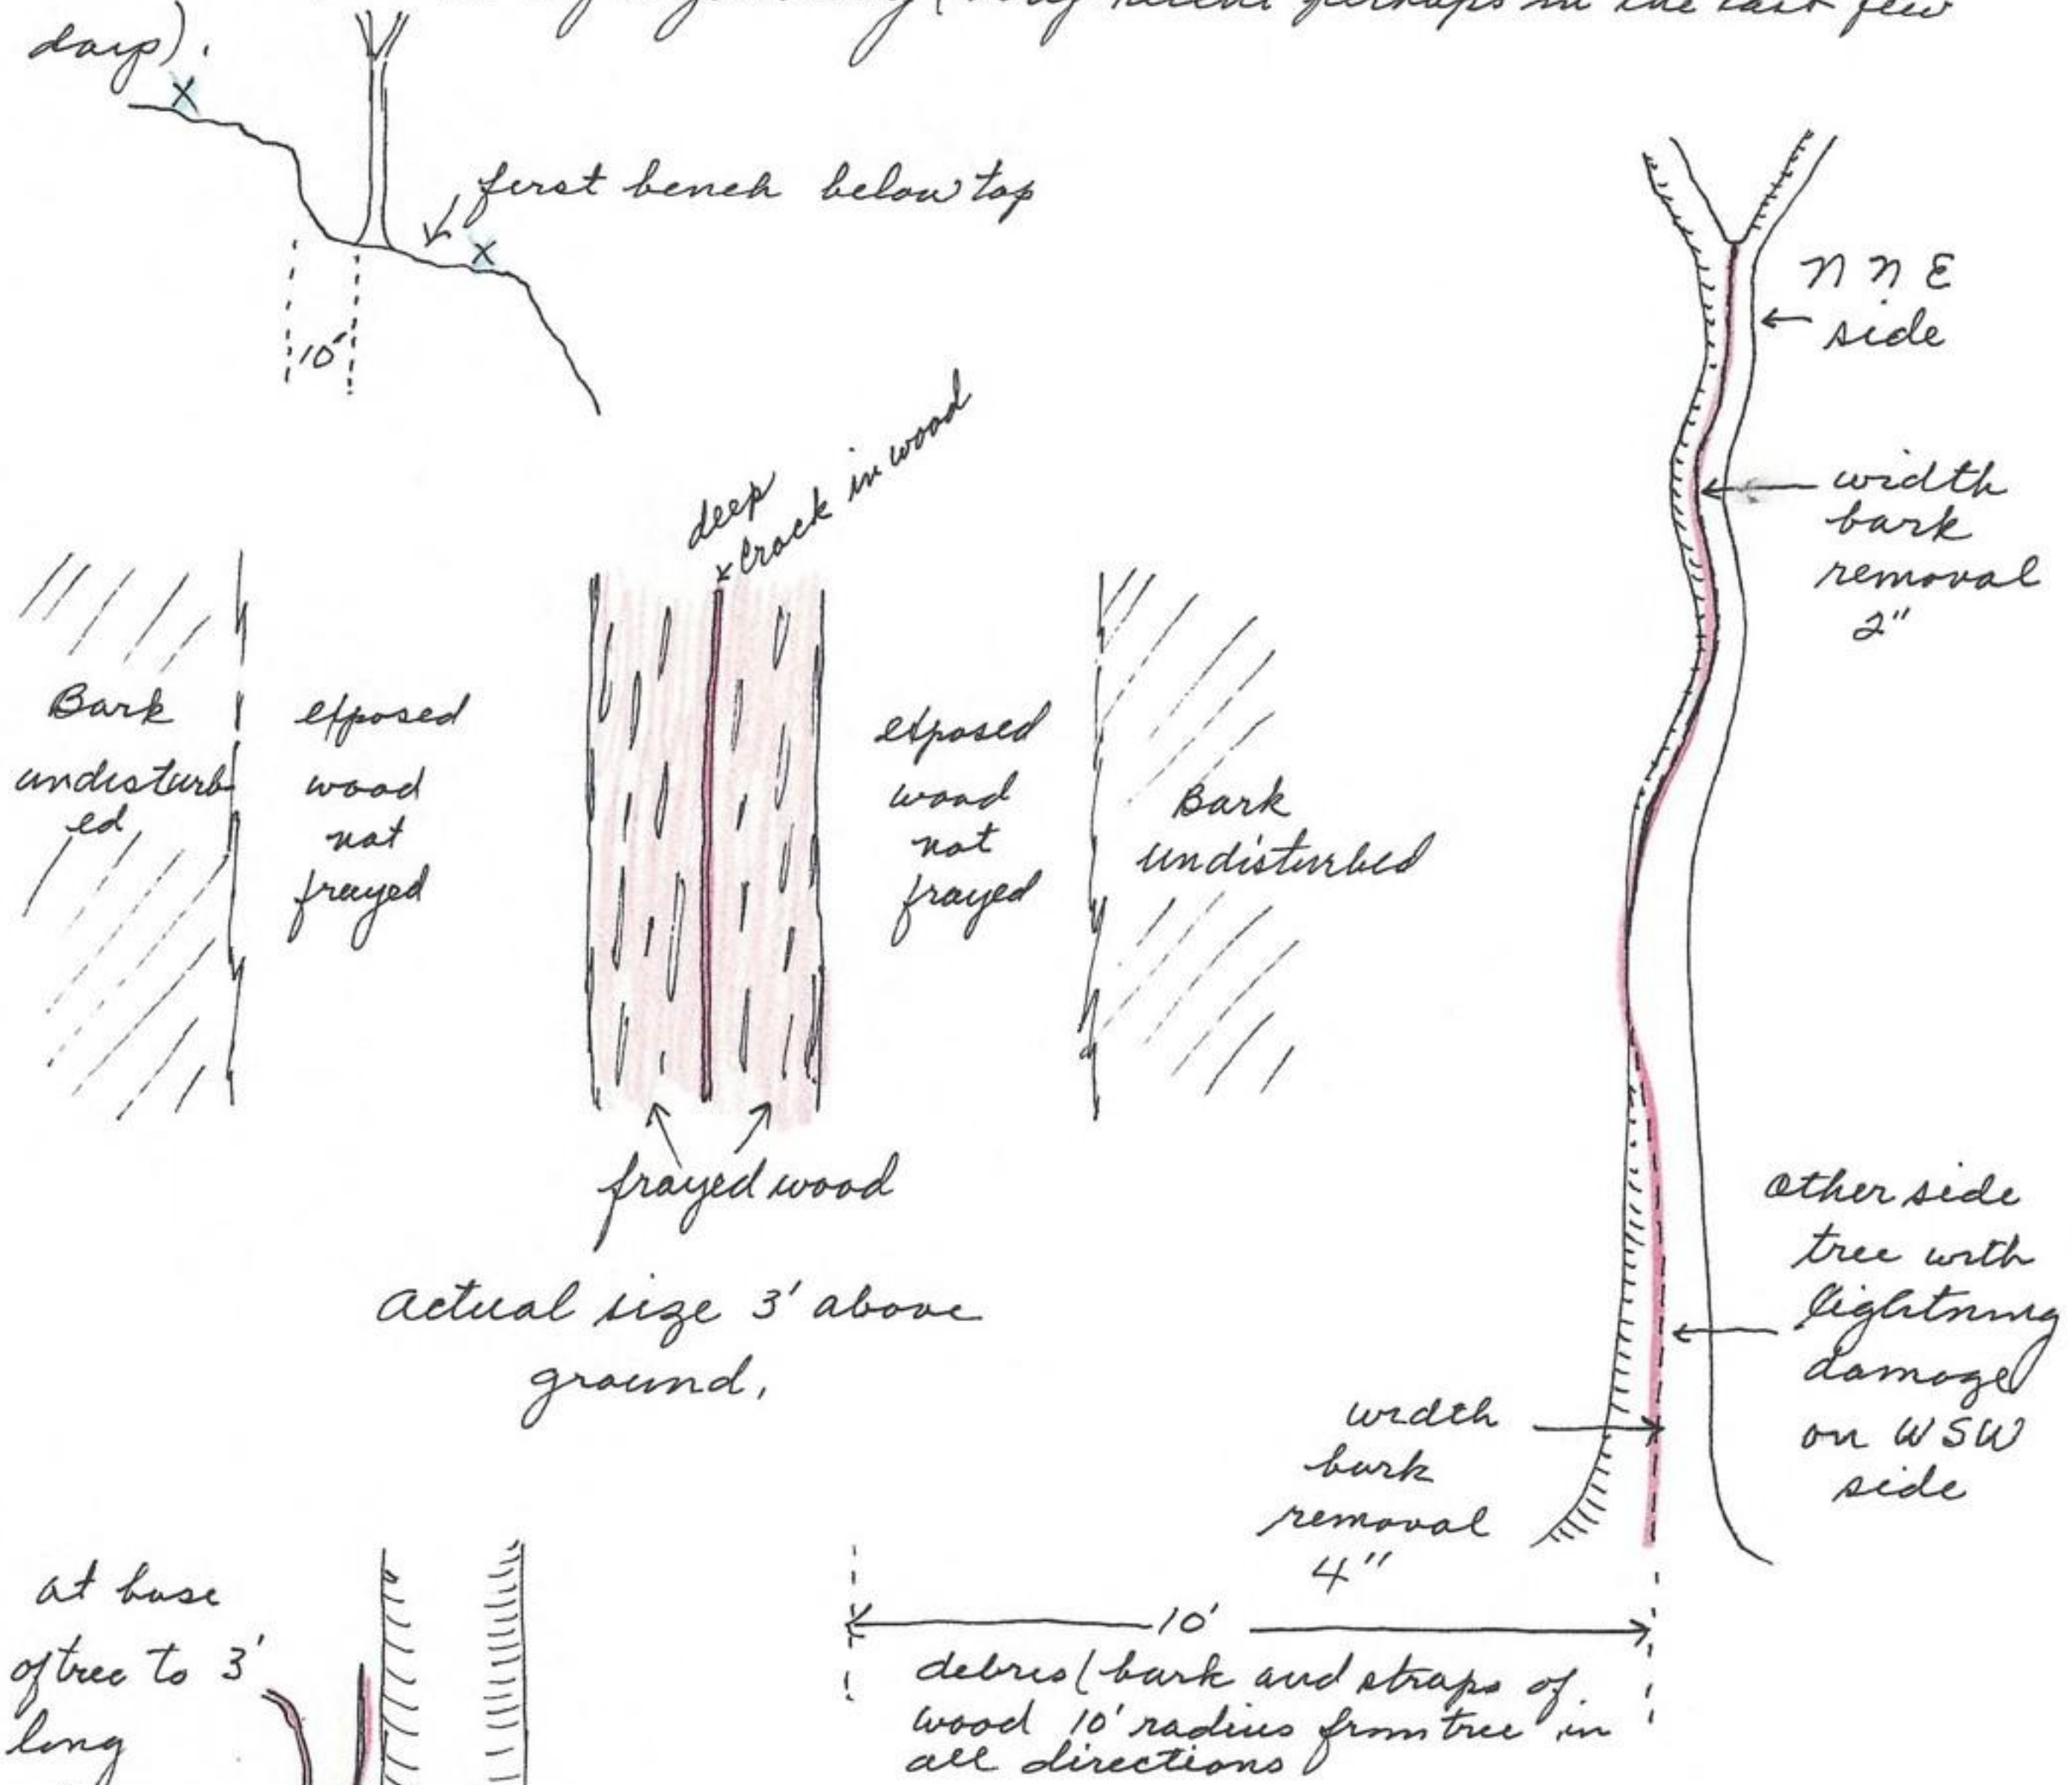 (very recent perhaps in the last few
days).
X
first bench below top
X
10'
deep
crack in wood
Bark
undisturb
ed
exposed
wood
not
frayed
exposed
wood
not
frayed
Bark
undisturbed
frayed wood
Actual size 3' above
ground.
N N E
side
width
bark
removal
2"
Other side
tree with
lightning
damage
on WSW
side
width
bark
removal
4"
10'
debris (bark and straps of
wood 10' radius from tree in
all directions
at base
of tree to 3'
long